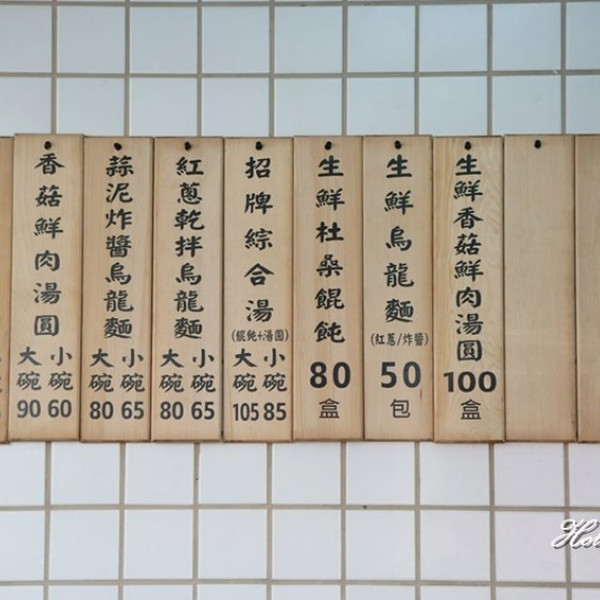 香菇鮮肉湯圓
大碗 小碗
90 60
蒜泥炸醬烏龍麵
大碗 小碗
80 65
紅蔥乾拌烏龍麵
大碗 小碗
80 65
招牌綜合湯
(餛飩+湯圓)
大碗 小碗
105 85
生鮮杜桑餛飩
80
盒
生鮮烏龍麵
(紅蔥/炸醬)
50
包
生鮮香菇鮮肉湯圓
100
盒